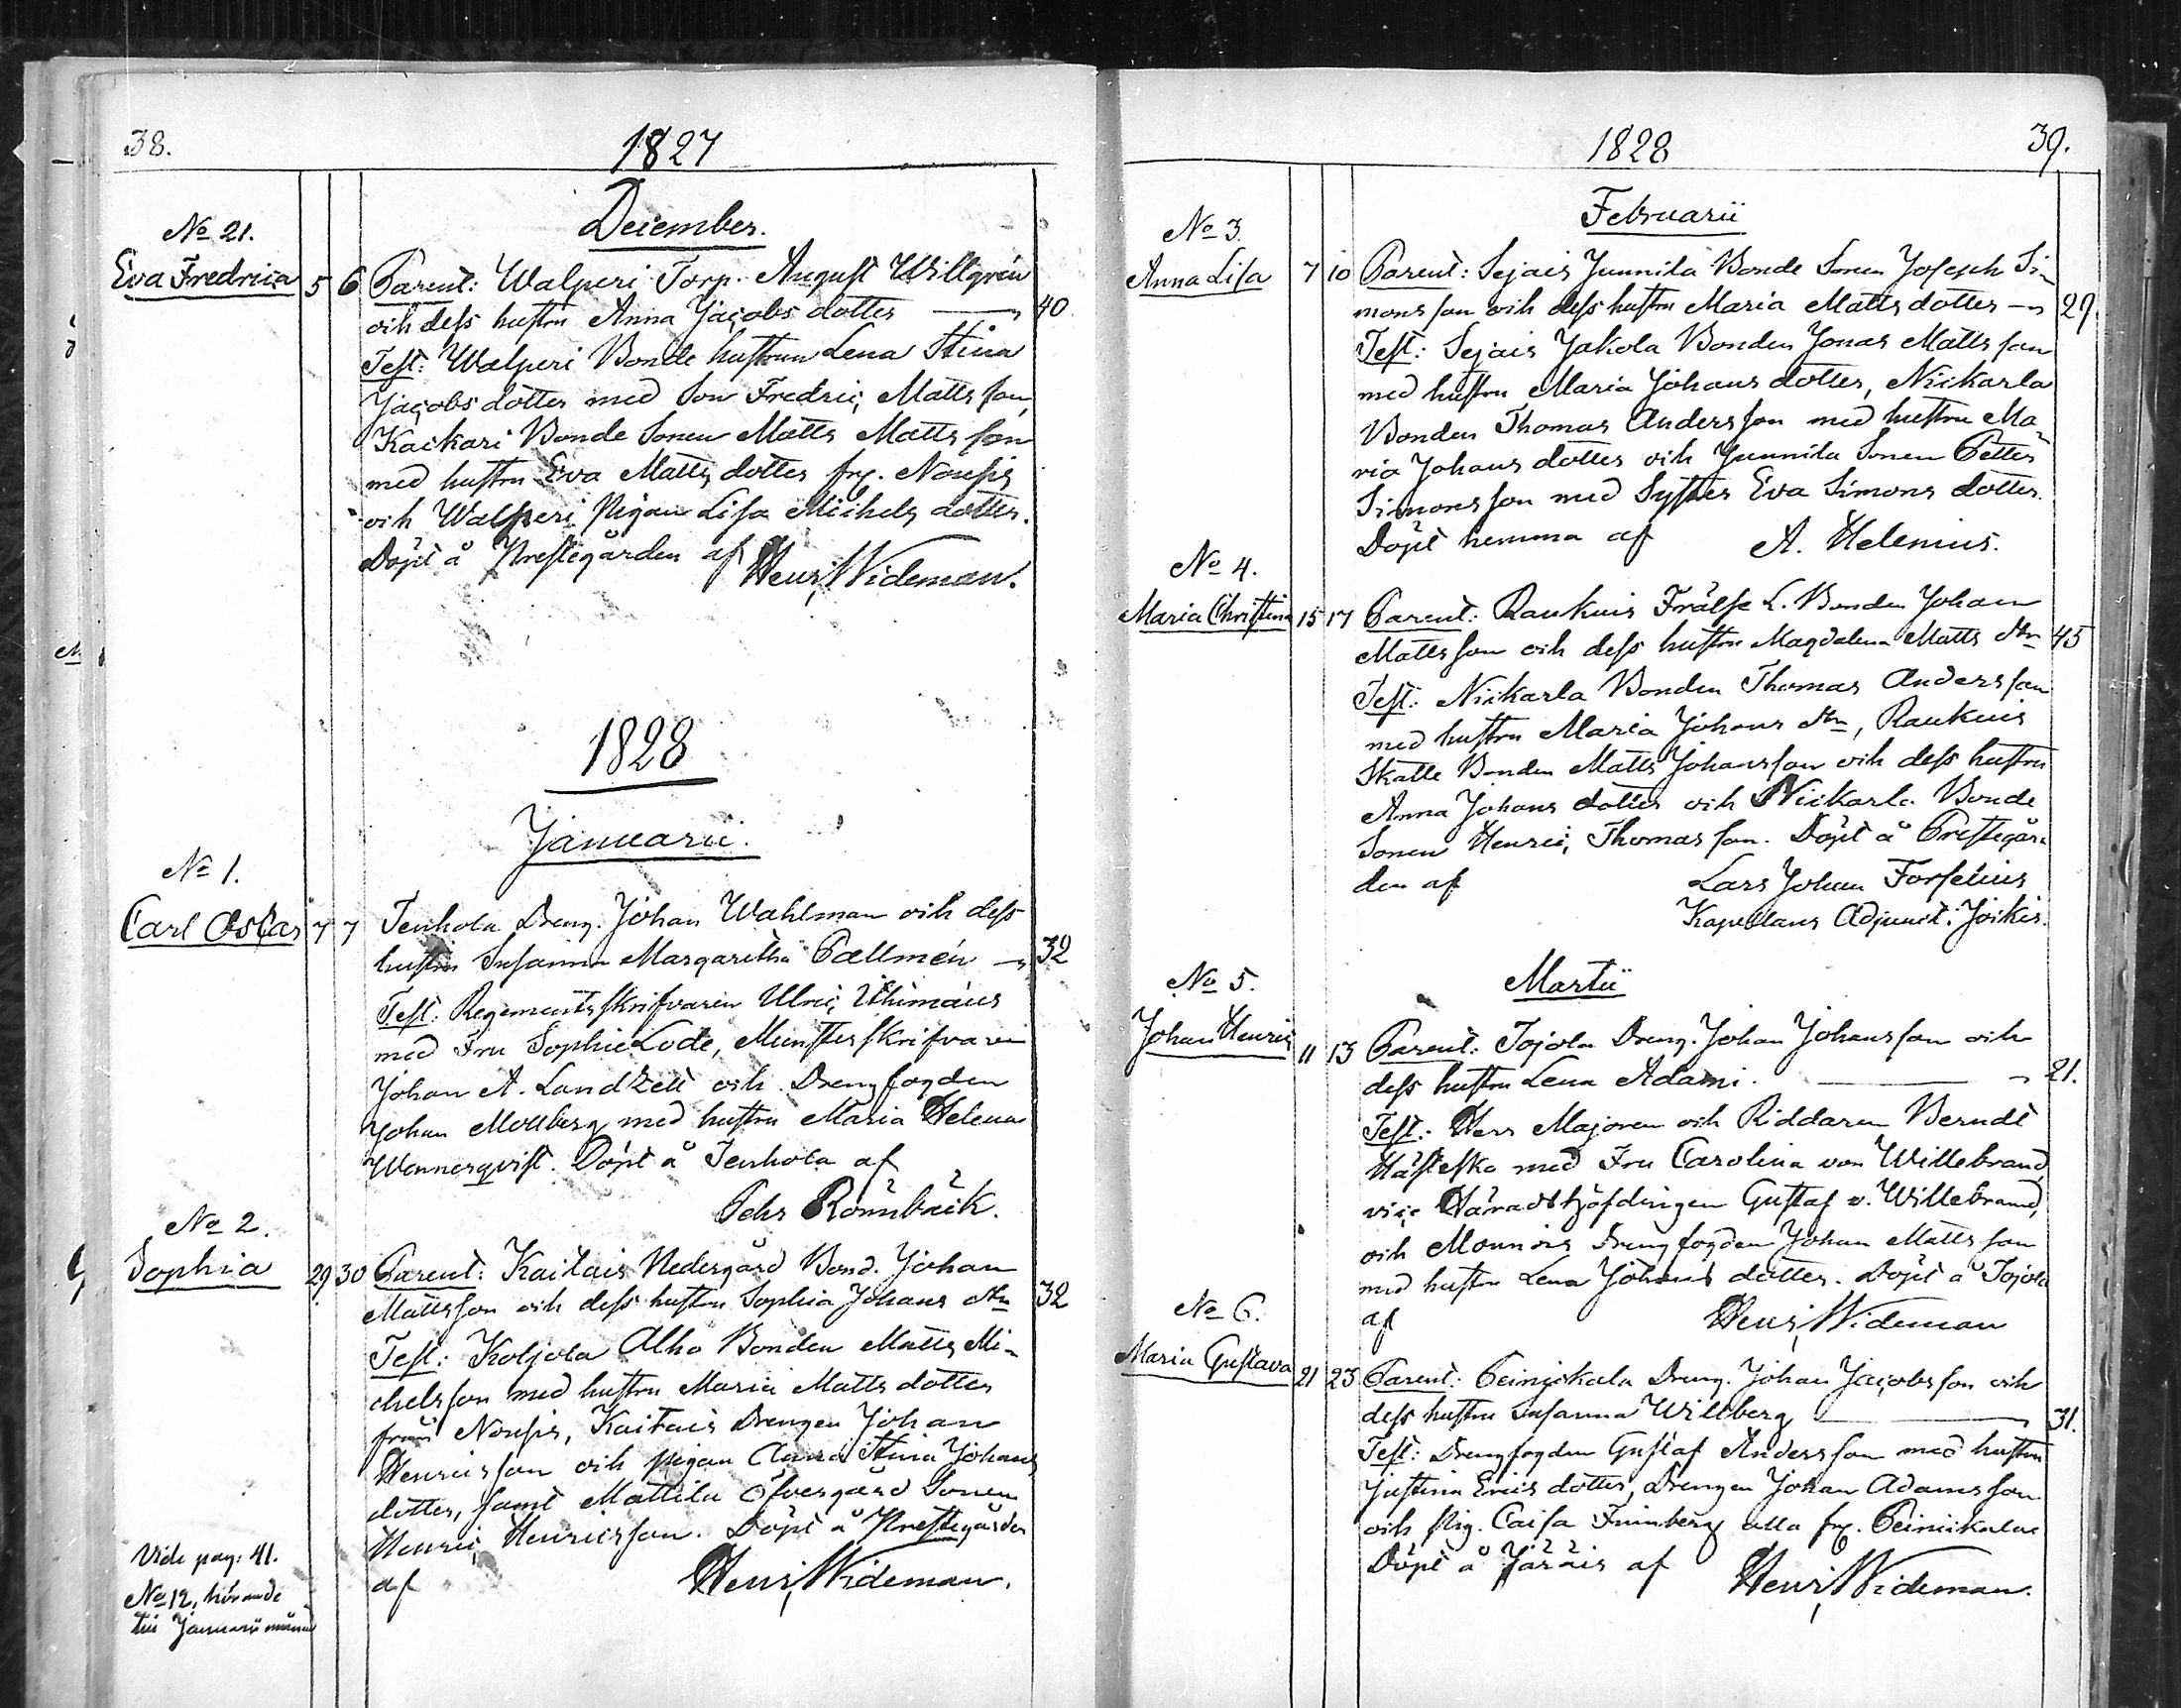 38.
1827
December.
No 21.
Eva Fredrica 5 6 Parent: Walperi Torp. August Willgrén
och dess hustru Anna Jacobs dotter — 40
Test: Walperi Bonde hustrun Lena Stina
Jacobs dotter med Son Fredric Matts son,
Kackari Bonde Sonen Matts Matts son
med hustru Eva Matts dotter frå. Nousis
och Walperi Pigan Lisa Michels dotter.
Döpt å Prestegården af Henr. Wideman.
1828
Januarii.
No 1.
Carl Oscar 7 7 Tenhola Dreng. Johan Wahlman och dess
hustru Susanna Margaretha Pallmén — 32
Test: Regementsskrifvaren Ulric
med Fru Sophie Lode, Munsterskrifvaren
Johan A. Landzett och Drengfogden
Johan Mollberg med hustru Maria Helena
Wennerqvist. Döpt å Tenhola af
Pehr Rönnbäck.
No 2.
Sophia 29 30 Parent: Kaitais Nedergård Bond. Johan
Mattsson och dess hustru Sophia Johans dtr 32
Test: Koljola Alho Bonden Matts Mi-
chelsson med hustru Maria Matts dotter
från Nousis, Kaitais Drengen Johan
Henricsson och pigan Anna Stina Johans
dotter, samt Mattila Öfvergård Sonen
Henric Henricsson. Döpt å Prestegården
af Henr. Wideman.
Vide pag: 41.
No 12, hörande
till Januarii månad
1828
39.
Februarii
No 3.
Anna Lisa 7 10 Parent: Sejais Junnila Bonde Sonen Joseph Si-
mons son och dess hustru Maria Matts dotter — 29
Test: Sejais Jakola Bonden Jonas Matts son
med hustru Maria Johans dotter, Nickarla
Bonden Thomas Andersson med hustru Ma-
ria Johans dotter och Junnila Sonen Petter
Simonsson med Syster Eva Simons dotter.
Döpt hemma af A. Helenius.
No 4.
Maria Christina 15 17 Parent: Raukuis Frälse L. Bonden Johan
Mattsson och dess hustru Magdalena Matts dtr 45
Test: Nickarla Bonden Thomas Andersson
med hustru Maria Johans dtr, Raukuis
Skatte Bonden Matts Johansson och dess hustru
Anna Johans dotter och Nickarla Bonde
Sonen Henric Thomas son. Döpt å Prestegår-
den af Lars Johan Forselius
Kapellans Adjunct i Jockis.
Martii
No 5.
Johan Henric 11 13 Parent: Tojola Dreng. Johan Johansson och
dess hustru Lena Adami. — 21.
Test: Herr Majoren och Riddaren Berndt
Hästesko med Fru Carolina von Willebrand,
vice Häradshöfdingen Gustaf v. Willebrand,
och Monnois Drengfogden Johan Matts son
med hustru Lena Johans dotter. Döpt å Tojola
af Henr. Wideman
No 6.
Maria Gustava 21 23 Parent: Peinickala Dreng. Johan Jacobsson och
dess hustru Susanna Willberg — 31.
Test: Drengfogden Gustaf Andersson med hustru
Justina Erics dotter, Drengen Johan Adamsson
och Pig. Caisa Finnberg alla frå. Peinickala
Döpt å Järäis af Henr. Wideman.